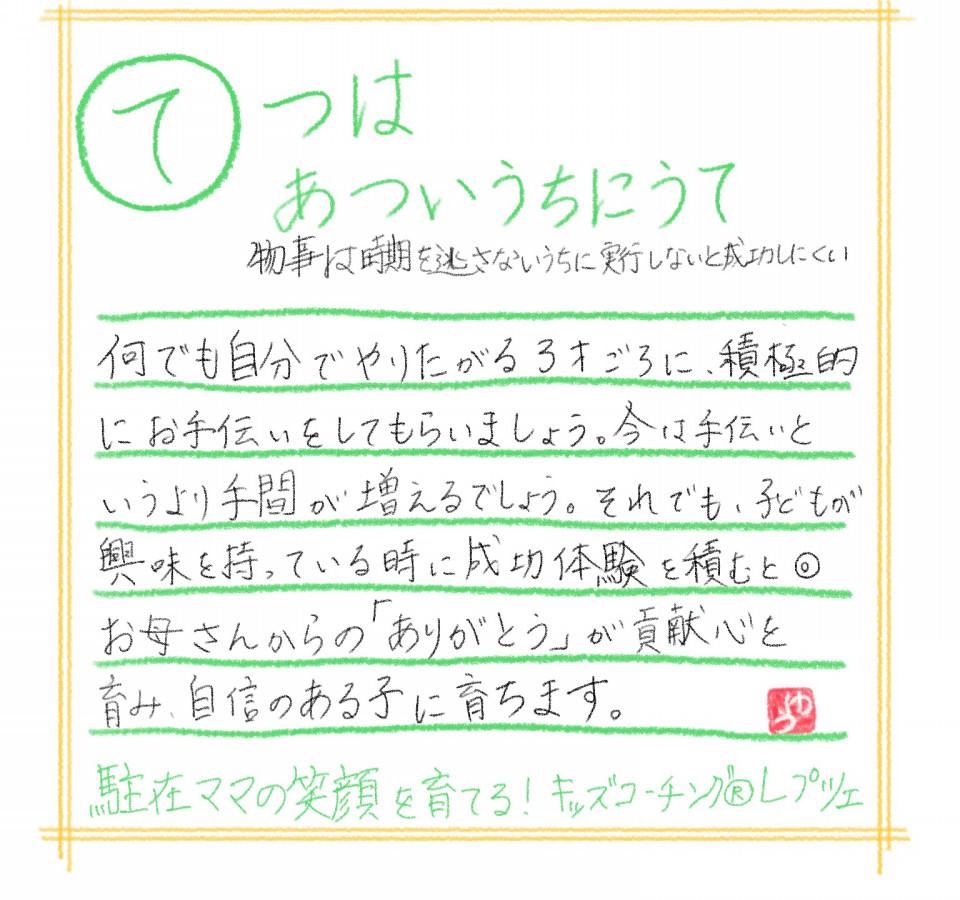 てつは
あついうちにうて
物事は時期を逃さないうちに実行しないと成功しにくい
何でも自分でやりたがる3才ごろに、積極的
にお手伝いをしてもらいましょう。今は手伝いと
いうより手間が増えるでしょう。それでも、子どもが
興味を持っている時に成功体験を積むと◎
お母さんからの「ありがとう」が貢献心を
育み、自信のある子に育ちます。
ゆう
駐在ママの笑顔を育てる!キッズコーチング®レプツェ